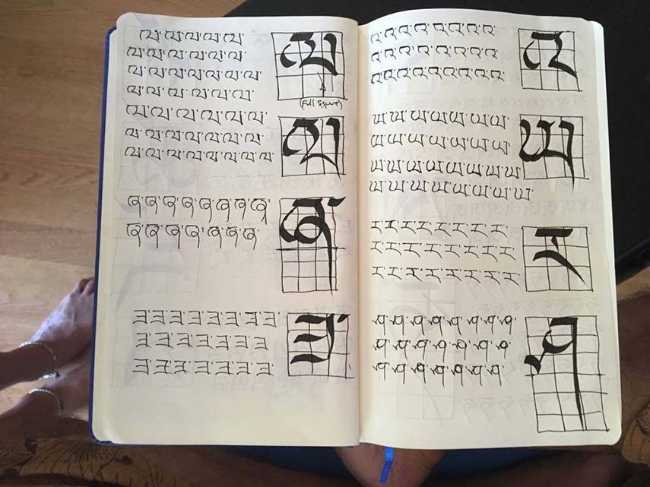 ཝ་ཝ་ཝ་ཝ་ཝ་ ཝ
ཝ་ཝ་ཝ་ཝ་ཝ་ཝ་
ཝ་ཝ་ཝ་ཝ་ཝ་ཝ་ཝ་
ཝ་ཝ་ཝ་ཝ་ཝ་ཝ་
(Full Square)
ཝ་ཝ་ཝ་ཝ་ཝ་ཝ་ ཝ
ཝ་ཝ་ཝ་ཝ་ཝ་ཝ་
ཝ་ཝ་ཝ་ཝ་ཝ་ཝ་ཝ་ཝ
ཞ་ཞ་ཞ་ཞ་ཞ་ཞ་ཞ་ ཞ
ཞ་ཞ་ཞ་ཞ་ཞ་ཞ་
ཟ་ཟ་ཟ་ཟ་ཟ་ཟ་ཟ་ ཟ
ཟ་ཟ་ཟ་ཟ་ཟ་ཟ་ཟ
ཟ་ཟ་ཟ་ཟ་ཟ་ཟ་ཟ་
འ་འ་འ་འ་འ་འ་འ་འ་ འ
འ་འ་འ་འ་འ་འ་འ་འ་
འ་འ་འ་འ་འ་འ་འ་འ་
ཡ་ཡ་ཡ་ཡ་ཡ་ཡ་ཡ་ ཡ
ཡ་ཡ་ཡ་ཡ་ཡ་ཡ་ཡ་
ཡ་ཡ་ཡ་ཡ་ཡ་ཡ་ཡ་ཡ་
ཡ་ཡ་ཡ་ཡ་ཡ་ཡ་ཡ་ཡ་
ར་ར་ར་ར་ར་ར་ར་ ར
ར་ར་ར་ར་ར་ར་ར་
ར་ར་ར་ར་ར་ར་ར་
ལ་ལ་ལ་ལ་ལ་ལ་ལ་ ལ
ལ་ལ་ལ་ལ་ལ་ལ་ལ་
ལ་ལ་ལ་ལ་ལ་ལ་ལ་